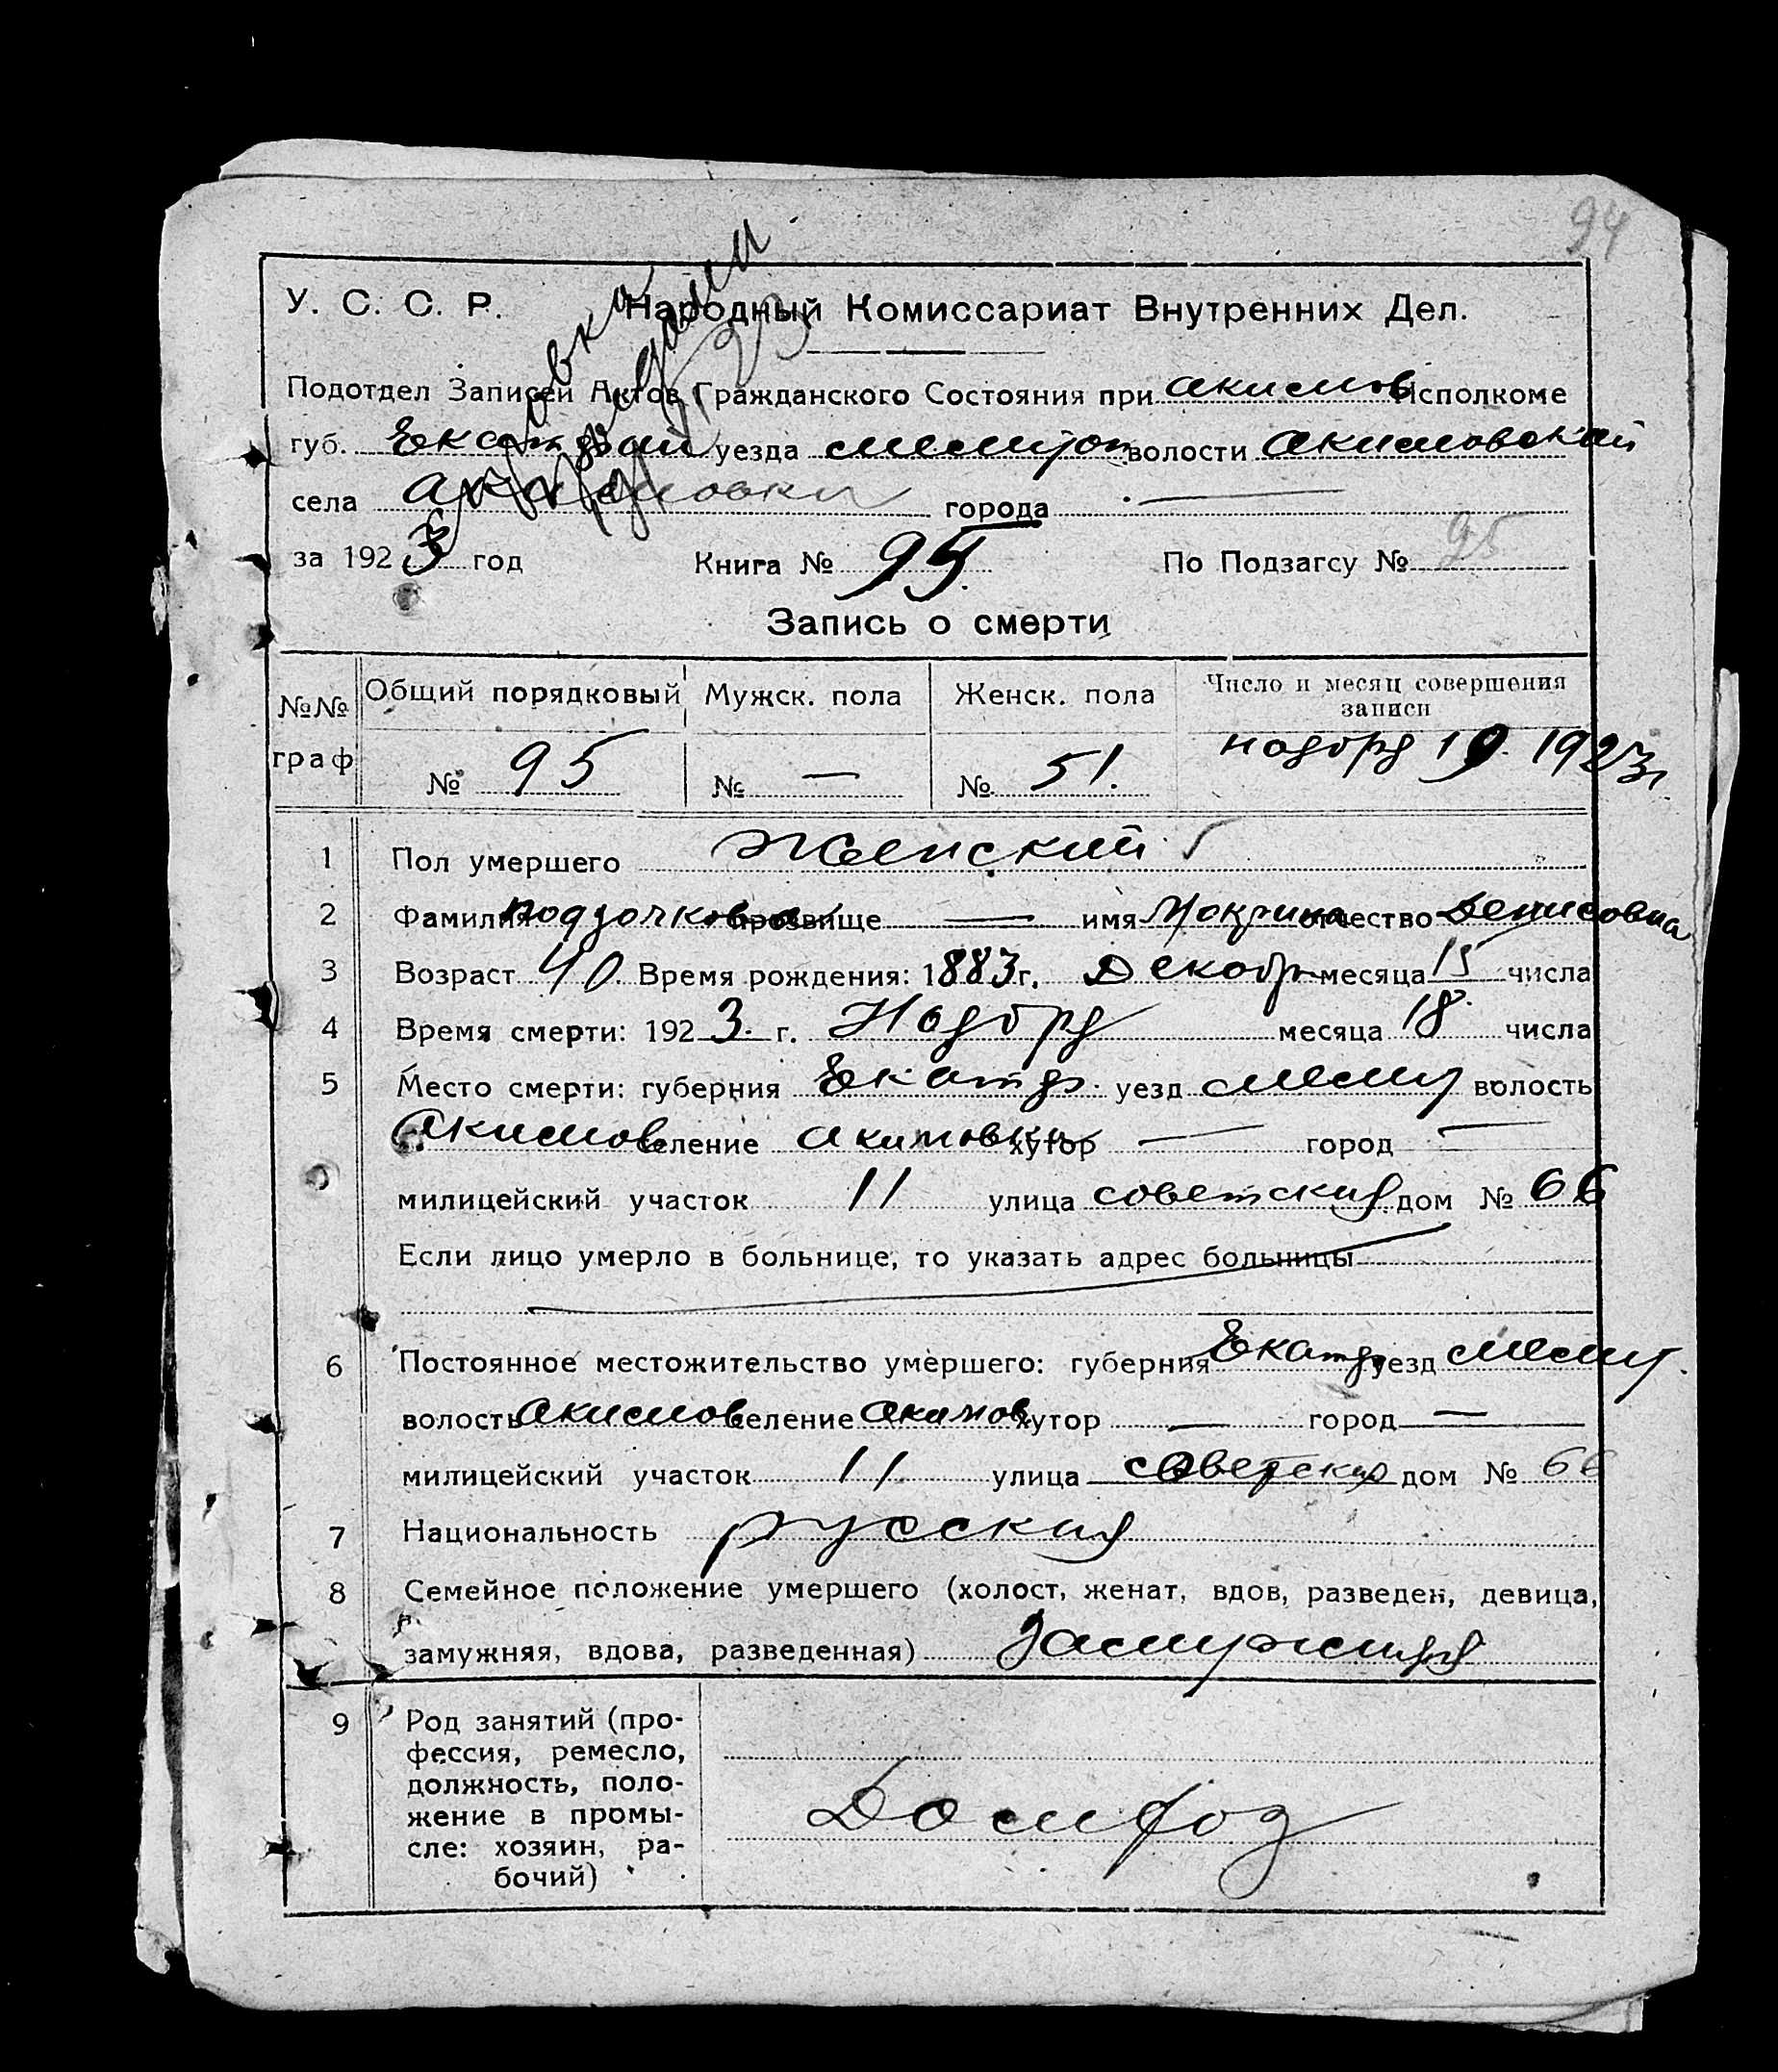 94
У. С. С. Р. Народный Комиссариат Внутренних Дел.
Подотдел Записей Актов Гражданского Состояния при акимов Исполкоме
губ. уезда волости акимовской
села акимовки города —
за 1923 год Книга № 95. По Подзагсу № 95
Запись о смерти
№№ граф Общий порядковый Мужск. пола Женск. пола Число и месяц совершения записи
№ 95 № — № 51. 19. 1923г
1 Пол умершего Женский
2 Фамилия прозвище — имя Мокрина отчество Денисовна
3 Возраст 40. Время рождения: 1883 г. Декабр месяца 15 числа
4 Время смерти: 1923. г. месяца 18. числа
5 Место смерти: губерния уезд волость
Акимов селение акимовки хутор — город —
милицейский участок 11 улица советская дом № 66
Если лицо умерло в больнице, то указать адрес больницы
6 Постоянное местожительство умершего: губерния уезд
волость акимов селение акимов хутор — город —
милицейский участок 11 улица советская дом № 66
7 Национальность русская
8 Семейное положение умершего (холост, женат, вдов, разведен, девица,
замужняя, вдова, разведенная) замужняя
9 Род занятий (про-
фессия, ремесло,
должность, поло-
жение в промы-
сле: хозяин, ра-
бочий)
Домхоз